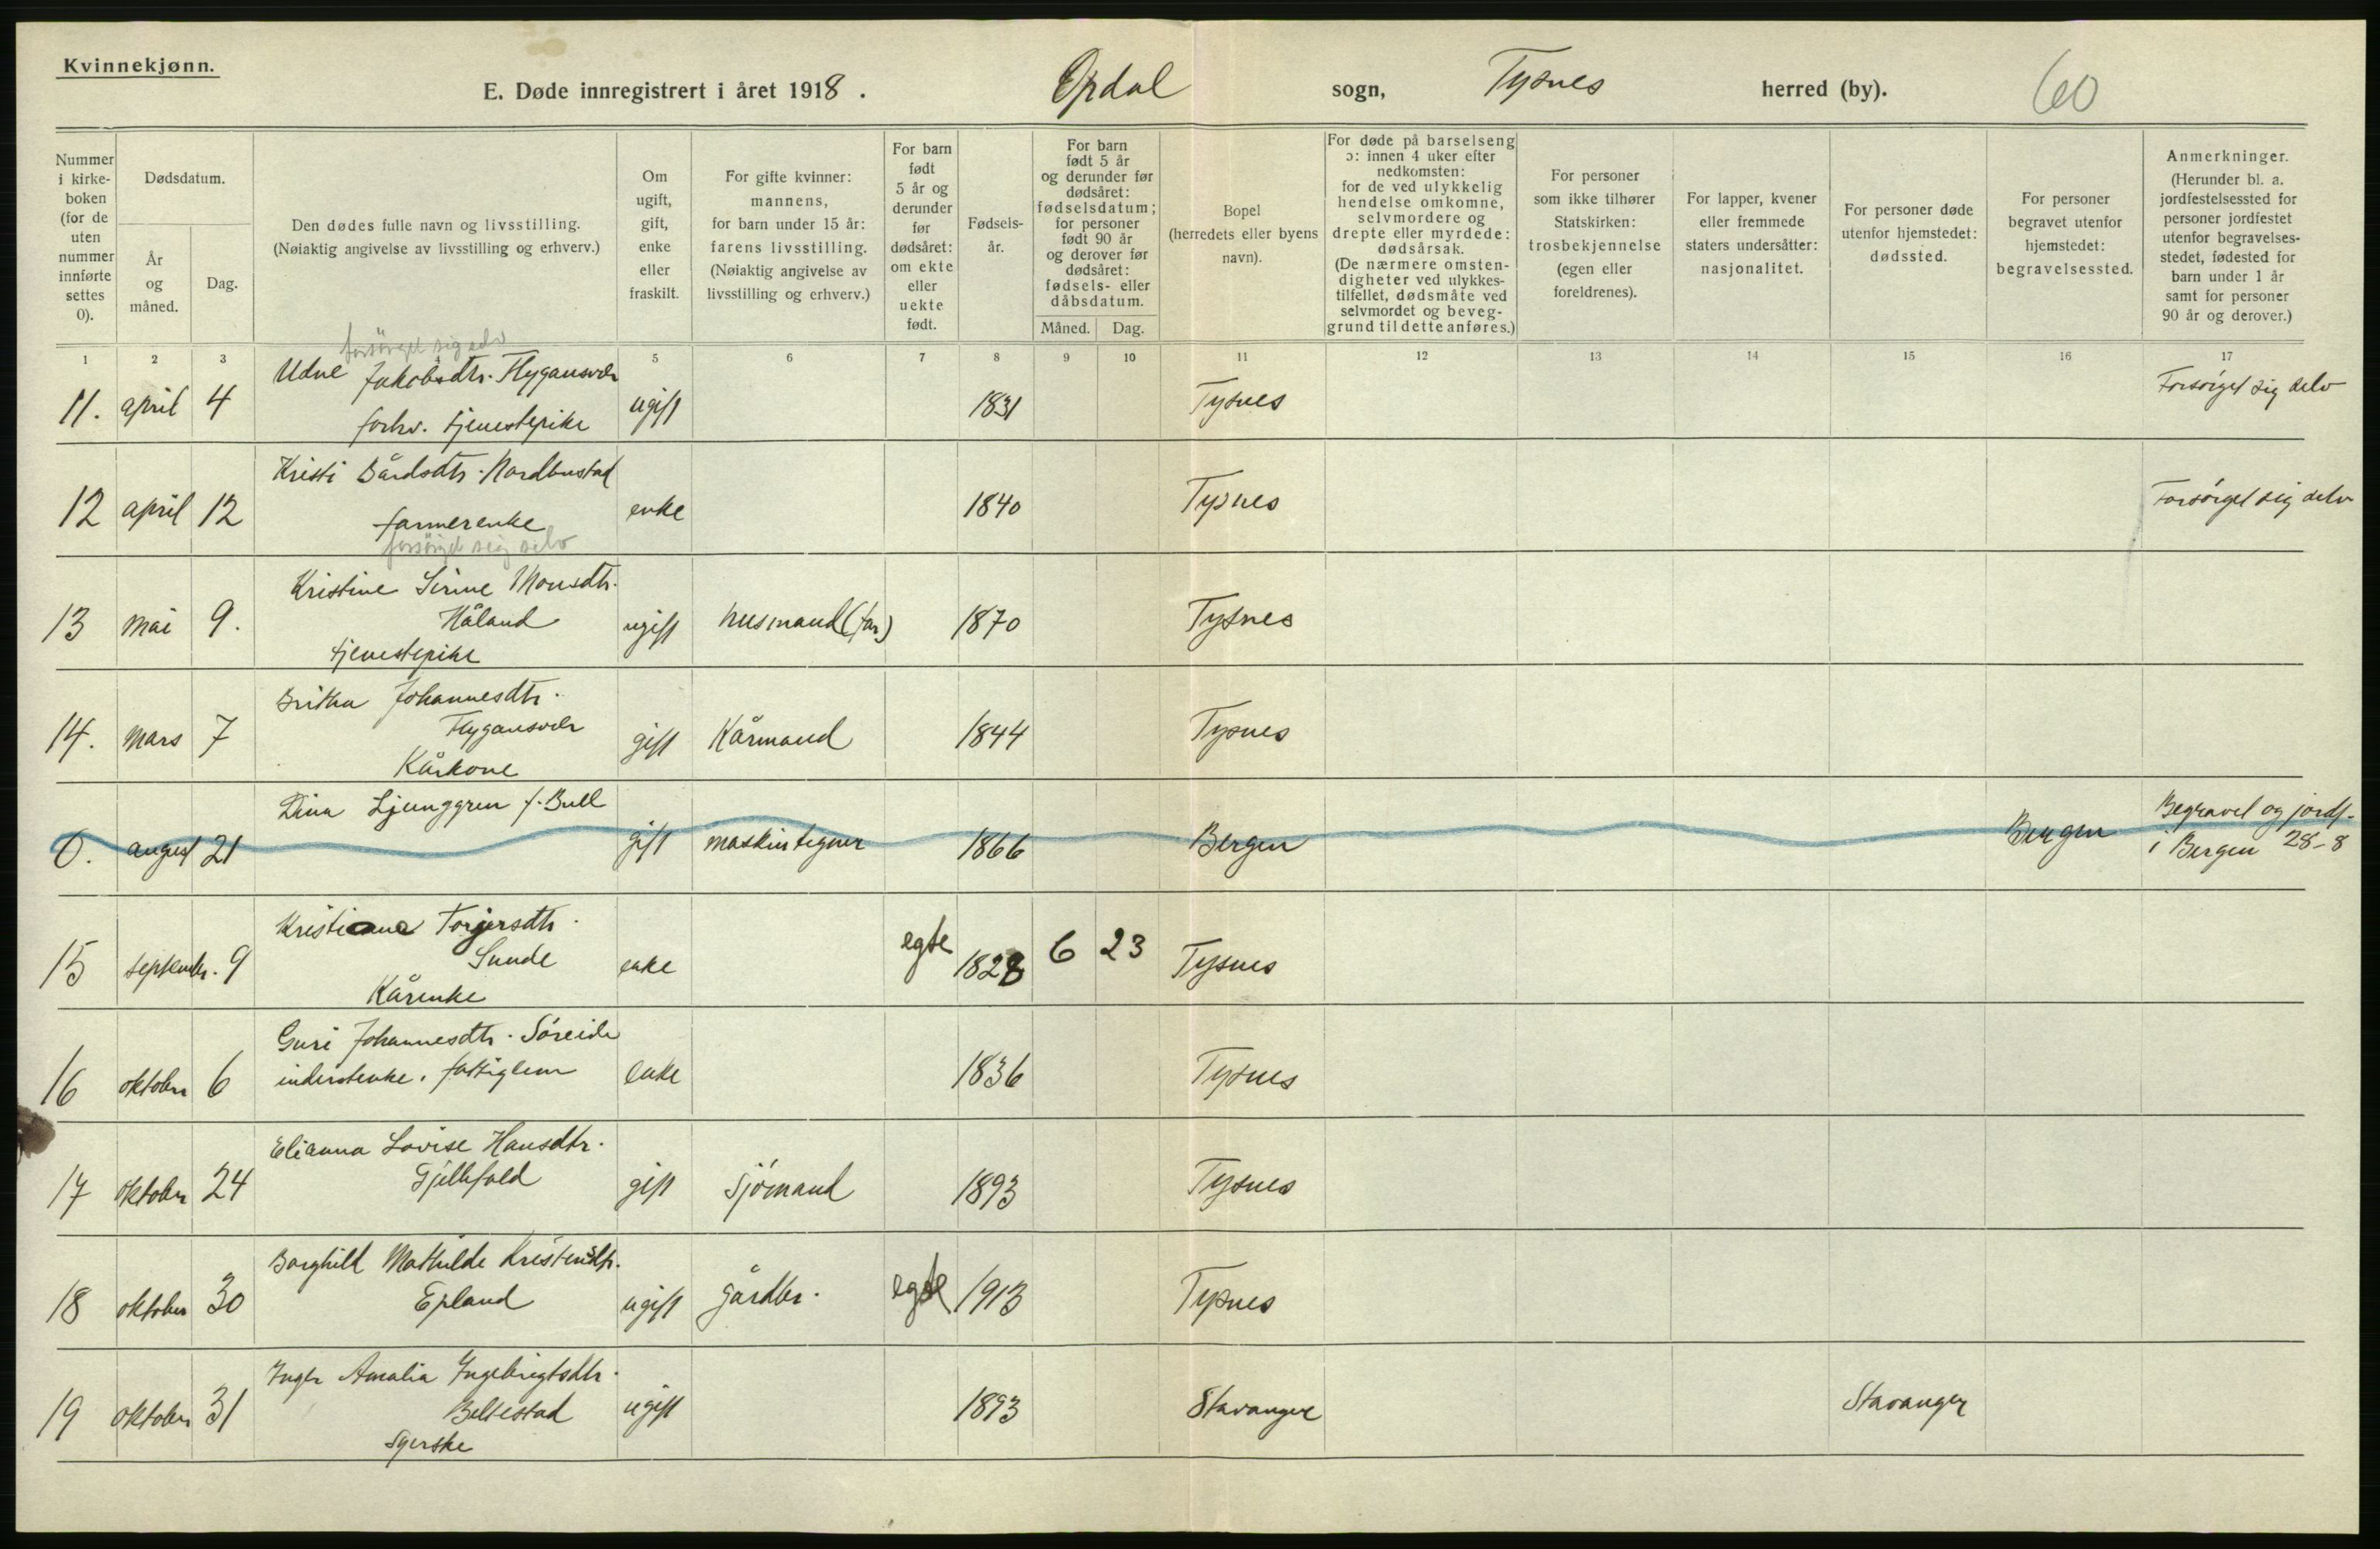 Kvinnekjønn.
E. Døde innregistrert i året 1918. Opdal sogn, Tysnes herred (by). 60
Nummer i kirke-boken (for de uten nummer innførte settes 0).
Dødsdatum.
År og måned.
Dag.
Den dødes fulle navn og livsstilling.
(Nøiaktig angivelse av livsstilling og erhverv.)
Om ugift, gift, enke eller fraskilt.
For gifte kvinner: mannens, for barn under 15 år: farens livsstilling. (Nøiaktig angivelse av livsstilling og erhverv.)
For barn født 5 år og derunder før dødsåret: om ekte eller uekte født.
Fødsels-år.
For barn født 5 år og derunder før dødsåret: fødselsdatum; for personer født 90 år og derover før dødsåret: fødsels- eller dåbsdatum.
Måned. Dag.
Bopel (herredets eller byens navn).
For døde på barselseng ɔ: innen 4 uker efter nedkomsten: for de ved ulykkelig hendelse omkomne, selvmordere og drepte eller myrdede: dødsårsak. (De nærmere omsten-digheter ved ulykkes-tilfellet, dødsmåte ved selvmordet og beveg-grund til dette anføres.)
For personer som ikke tilhører Statskirken: trosbekjennelse (egen eller foreldrenes).
For lapper, kvener eller fremmede staters undersåtter: nasjonalitet.
For personer døde utenfor hjemstedet: dødssted.
For personer begravet utenfor hjemstedet: begravelsessted.
Anmerkninger. (Herunder bl. a. jordfestelsessted for personer jordfestet utenfor begravelses-stedet, fødested for barn under 1 år samt for personer 90 år og derover.)
1 2 3 4 5 6 7 8 9 10 11 12 13 14 15 16 17
forsörget sig selv
Udne Jakobsdtr. Flygansvær
11. april 4 forhv. tjenestepike ugift 1831 Tysnes Forsörget sig selv
Kristi Bårdsdtr. Nordbustad
12 april 12 farmerenke enke 1840 Tysnes Forsörget sig selv
forsörget seig selv
Kristine Sirine Monsdtr.
13 mai 9. Håland ugift husmand (far) 1870 Tysnes
tjenestepike
Britha Johannesdtr.
14. mars 7 Flygansvær gift Kårmand 1844 Tysnes
Kårkone
Dina Ljunggren f. Bull
0. august 21 gift maskintegner 1866 Bergen Bergen Begravet og jordf. i Bergen 28-8
Kristiane Torjersdtr.
15 septembr. 9 Sunde enke egte 1828 6 23 Tysnes
Kårenke
Guri Johannesdtr. Söreide
16 oktober 6 inderstenke. fattiglem enke 1836 Tysnes
Elianna Lovise Hansdtr.
17 oktober 24 Gjellefald gift sjömand 1893 Tysnes
Borghild Mathilde Kristensdtr.
18 oktober 30 Epland ugift gårdbr. egte 1913 Tysnes
Inger Amalia Ingebrigtsdtr.
19 oktober 31 Beltestad ugift 1893 Stavanger Stavanger
syerske